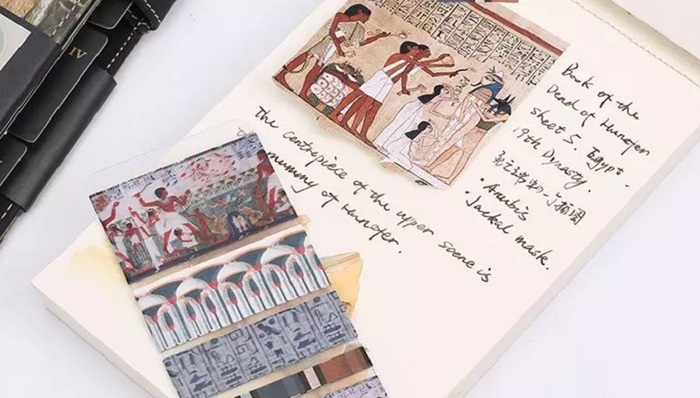 IV
Book of the
Dead of Hunefer
sheet 5. Egypt.
19th Dynasty.
• Anubis
• Jackal mask.
The centrepiece of the upper scene is
mummy of Hunefer.